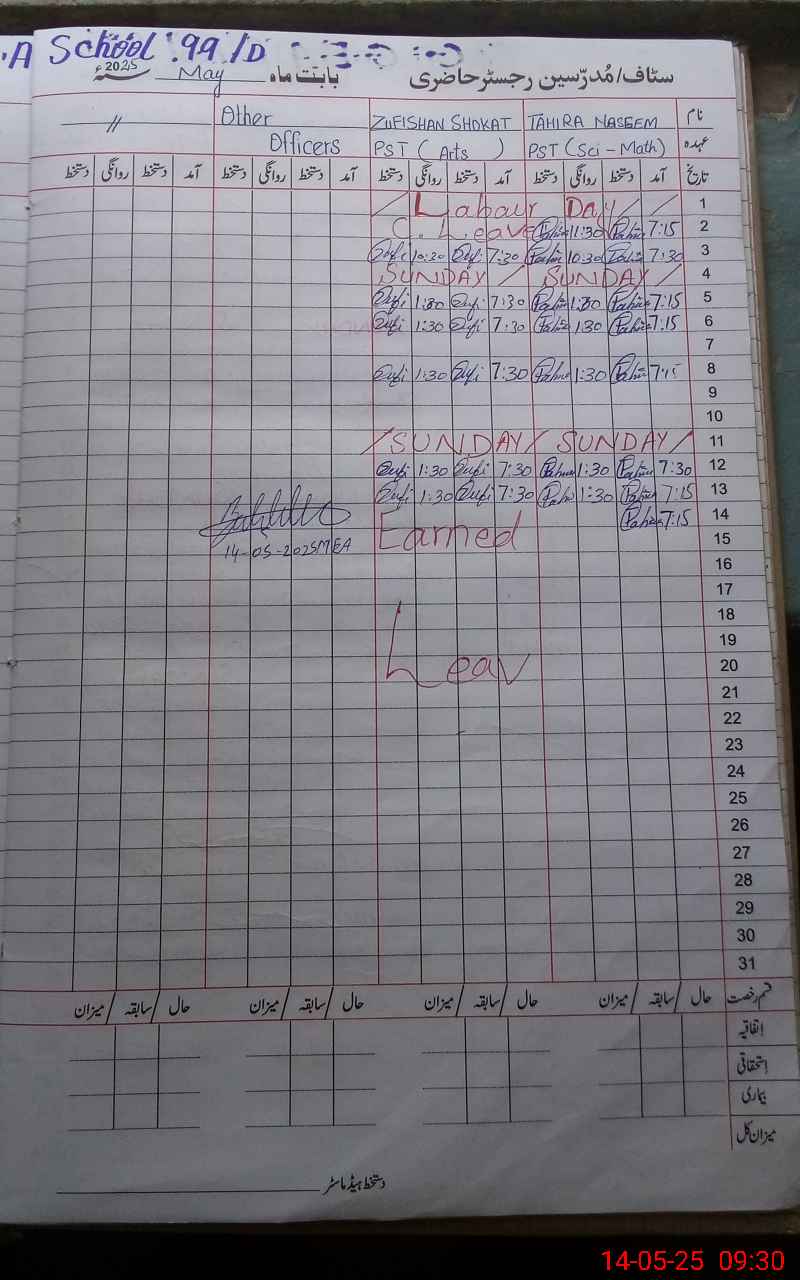 .A School .99/D
سٹاف/مُدرّسین رجسٹر حاضری بابت ماہ May سنہ 2025ء
نام TAHIRA NASEEM ZUFISHAN SHOKAT Other Officers //
عہدہ PST (Sci - Math) PST (Arts)
تاریخ آمد دستخط روانگی دستخط آمد دستخط روانگی دستخط آمد دستخط روانگی دستخط آمد دستخط روانگی دستخط
1 / Labour Day / /
2 7:15 11:30 C. Leave
3 7:30 10:30 Zufi 7:30 Zufi 10:30
4 SUNDAY / SUNDAY /
5 7:15 1:30 Zufi 7:30 Zufi 1:30
6 7:15 1:30 Zufi 7:30 Zufi 1:30
7
8 7:15 1:30 Zufi 7:30 Zufi 1:30
9
10
11 / SUNDAY / SUNDAY /
12 7:30 1:30 Zufi 7:30 Zufi 1:30
13 7:15 1:30 Zufi 7:30 Zufi 1:30
14 7:15
15 Earned 14-05-2025 MEA
16
17
18
19
20 Leav
21
22
23
24
25
26
27
28
29
30
31
قسم رخصت حال / سابقہ / میزان حال / سابقہ / میزان حال / سابقہ / میزان حال / سابقہ / میزان
اتفاقیہ
استحقاقی
بیماری
میزان کل
دستخط ہیڈ ماسٹر
14-05-25 09:30